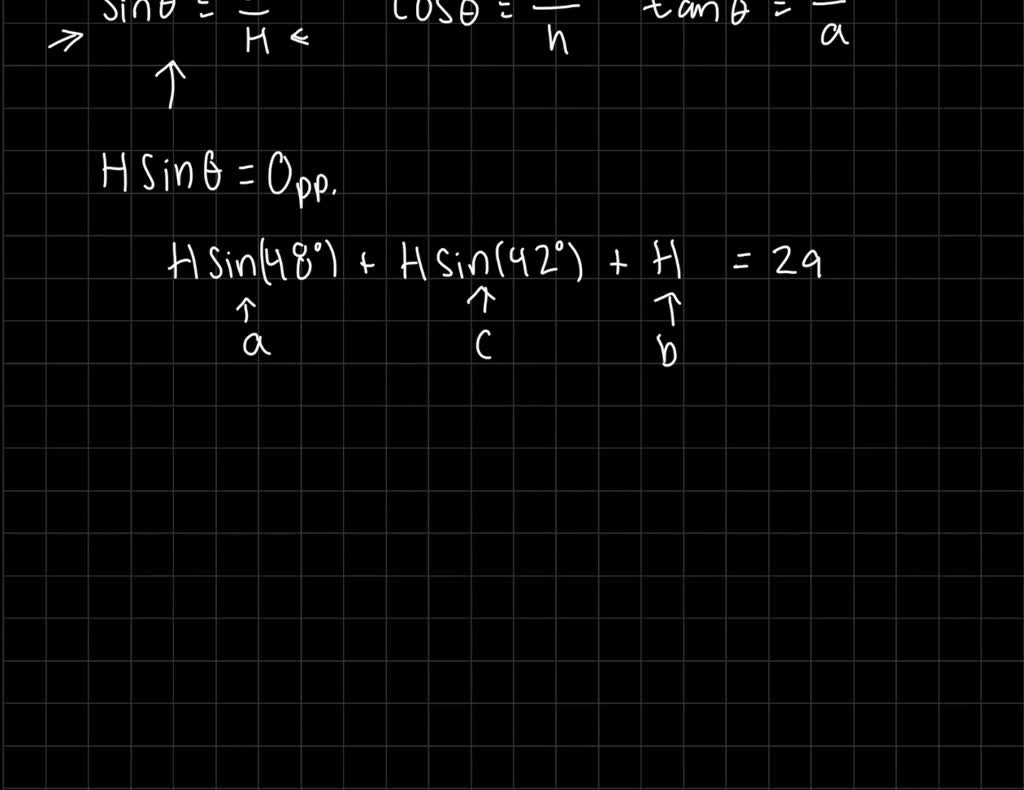 sinθ = — H cosθ = — h tanθ = — a
H sinθ = Opp.
H sin(48°) + H sin(42°) + H = 29
a c b